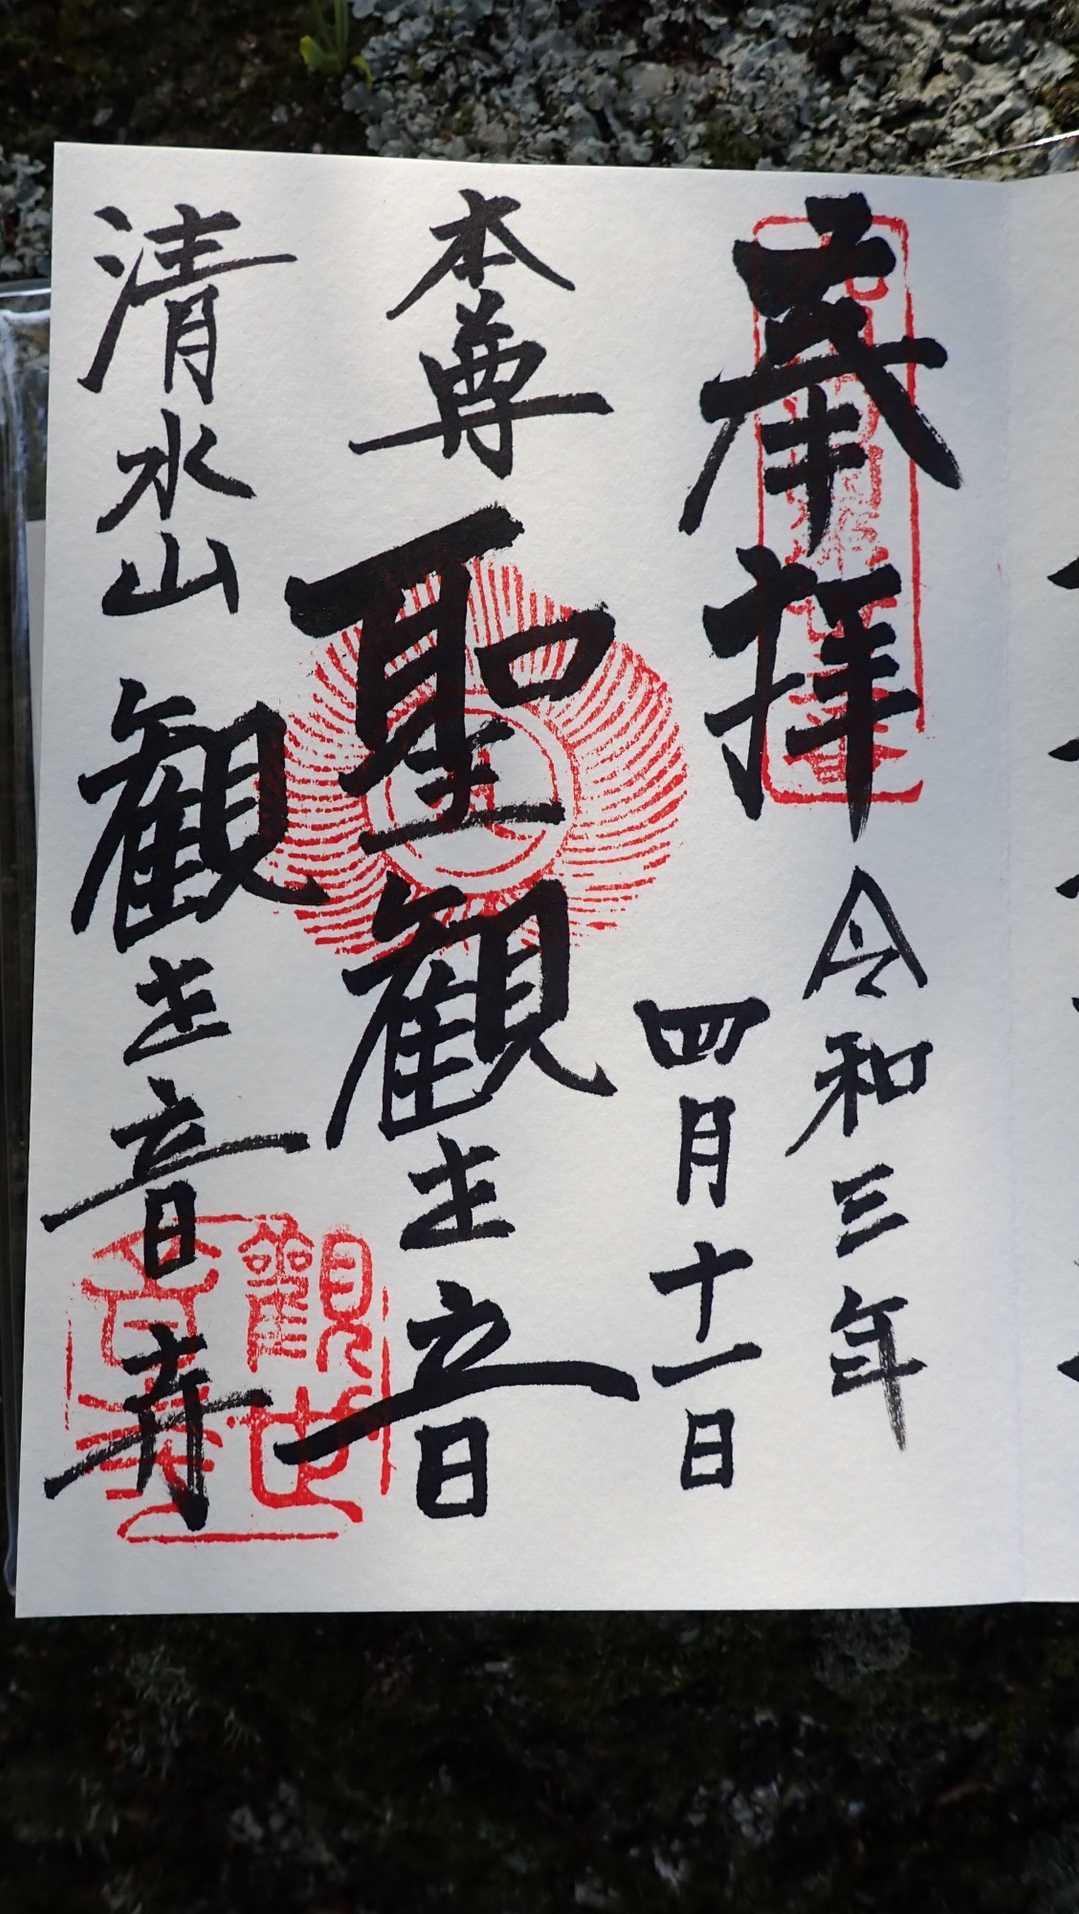 奉拝
令和三年
四月十一日
本尊
聖観世音
清水山
観世音寺
観世
音寺